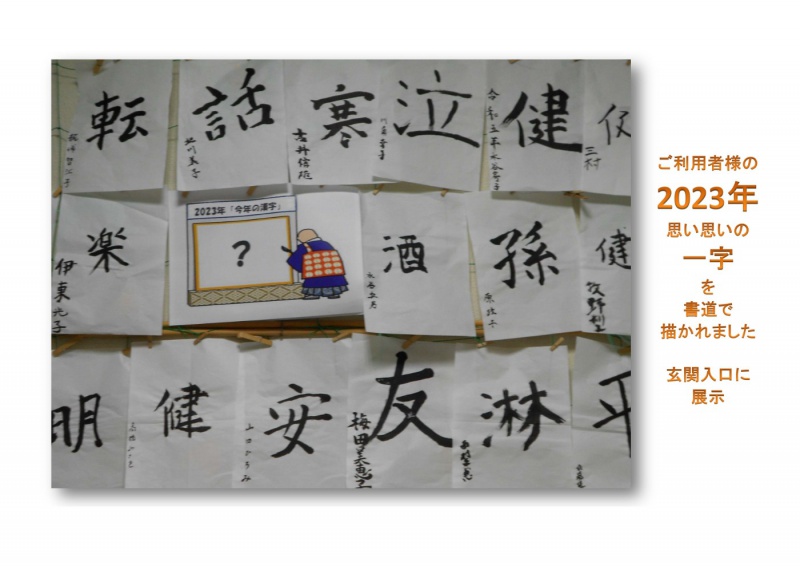 転
話
寒
泣
健
三村
楽
伊東光子
2023年「今年の漢字」
?
酒
孫
健
牧野
明
健
安
友
梅田美恵子
淋
平
ご利用者様の
2023年
思い思いの
一字
を
書道で
描かれました
玄関入口に
展示